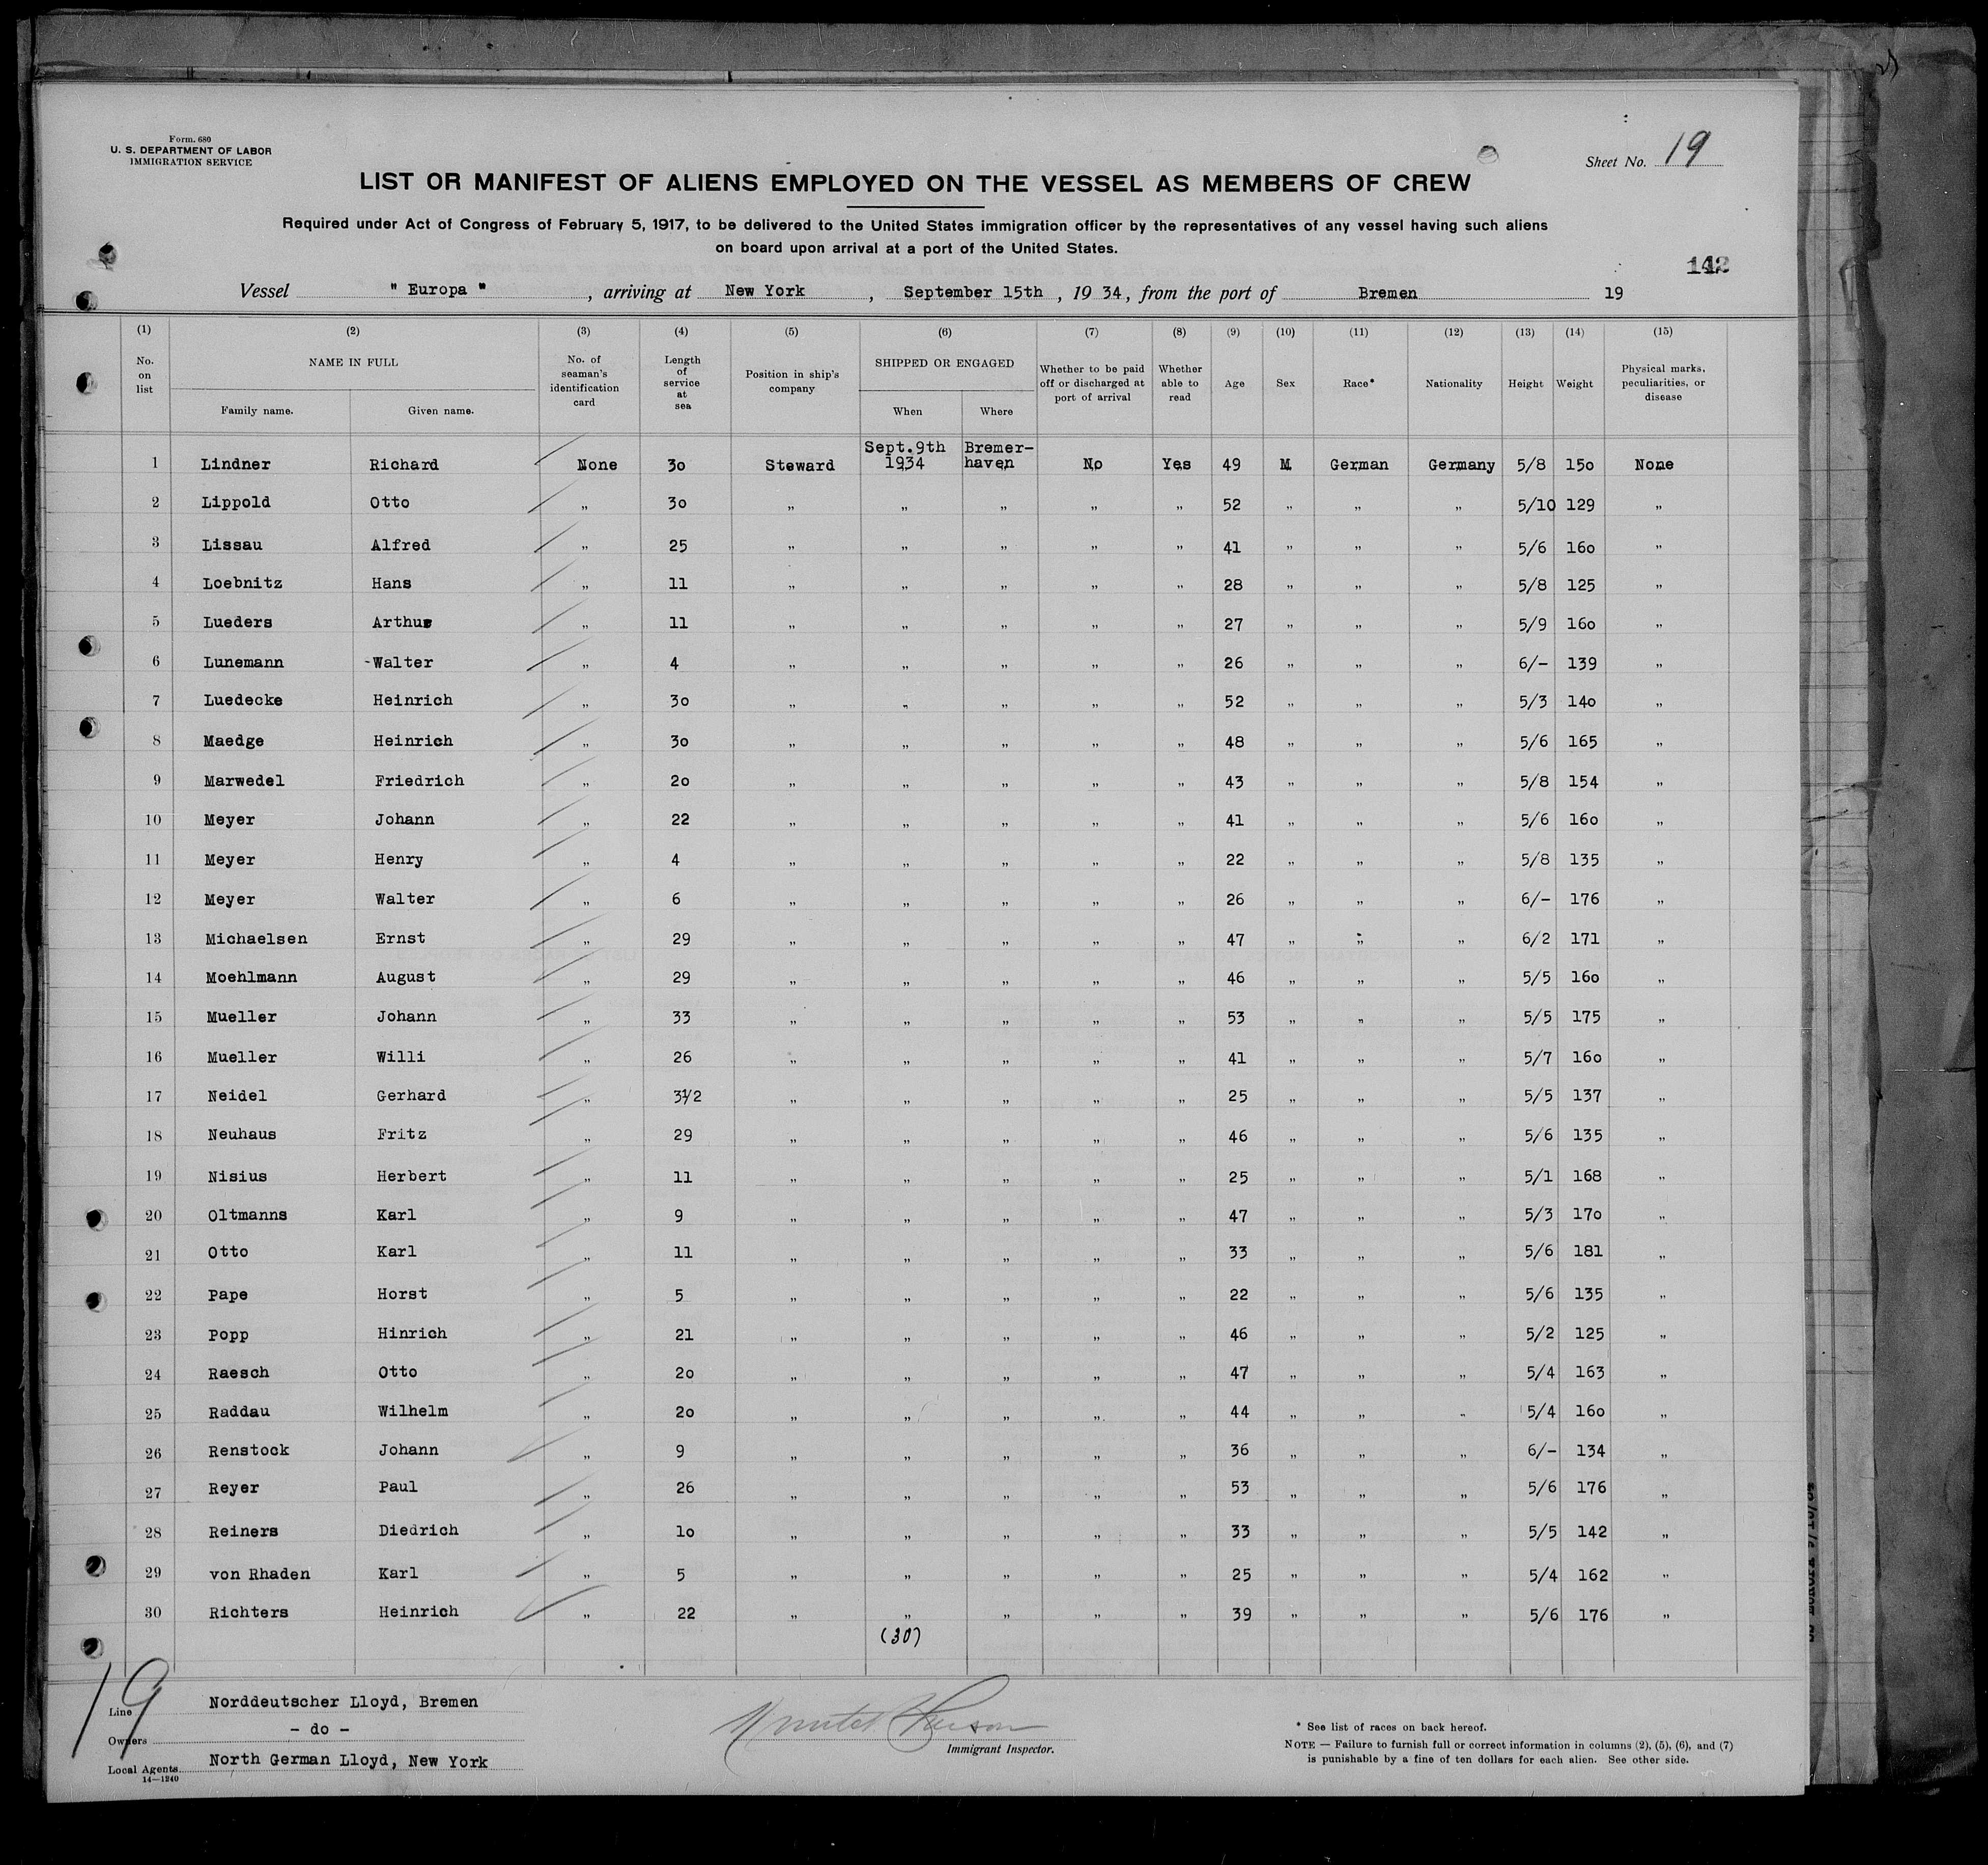 Form. 680
U. S. DEPARTMENT OF LABOR
IMMIGRATION SERVICE
Sheet No. 19
LIST OR MANIFEST OF ALIENS EMPLOYED ON THE VESSEL AS MEMBERS OF CREW
Required under Act of Congress of February 5, 1917, to be delivered to the United States immigration officer by the representatives of any vessel having such aliens
on board upon arrival at a port of the United States.
142
Vessel " Europa " , arriving at New York , September 15th , 19 34, from the port of Bremen 19
(1) (2) (3) (4) (5) (6) (7) (8) (9) (10) (11) (12) (13) (14) (15)
No. on list NAME IN FULL Family name. Given name. No. of seaman's identification card Length of service at sea Position in ship's company SHIPPED OR ENGAGED When Where Whether to be paid off or discharged at port of arrival Whether able to read Age Sex Race* Nationality Height Weight Physical marks, peculiarities, or disease
1 Lindner Richard None 30 Steward Sept.9th 1934 Bremer-haven No Yes 49 M German Germany 5/8 150 None
2 Lippold Otto " 30 " " " " " 52 " " " 5/10 129 "
3 Lissau Alfred " 25 " " " " " 41 " " " 5/6 160 "
4 Loebnitz Hans " 11 " " " " " 28 " " " 5/8 125 "
5 Lueders Arthur " 11 " " " " " 27 " " " 5/9 160 "
6 Lunemann -Walter " 4 " " " " " 26 " " " 6/- 139 "
7 Luedecke Heinrich " 30 " " " " " 52 " " " 5/3 140 "
8 Maedge Heinrich " 30 " " " " " 48 " " " 5/6 165 "
9 Marwedel Friedrich " 20 " " " " " 43 " " " 5/8 154 "
10 Meyer Johann " 22 " " " " " 41 " " " 5/6 160 "
11 Meyer Henry " 4 " " " " " 22 " " " 5/8 135 "
12 Meyer Walter " 6 " " " " " 26 " " " 6/- 176 "
13 Michaelsen Ernst " 29 " " " " " 47 " " " 6/2 171 "
14 Moehlmann August " 29 " " " " " 46 " " " 5/5 160 "
15 Mueller Johann " 33 " " " " " 53 " " " 5/5 175 "
16 Mueller Willi " 26 " " " " " 41 " " " 5/7 160 "
17 Neidel Gerhard " 3½ " " " " " 25 " " " 5/5 137 "
18 Neuhaus Fritz " 29 " " " " " 46 " " " 5/6 135 "
19 Nisius Herbert " 11 " " " " " 25 " " " 5/1 168 "
20 Oltmanns Karl " 9 " " " " " 47 " " " 5/3 170 "
21 Otto Karl " 11 " " " " " 33 " " " 5/6 181 "
22 Pape Horst " 5 " " " " " 22 " " " 5/6 135 "
23 Popp Hinrich " 21 " " " " " 46 " " " 5/2 125 "
24 Raesch Otto " 20 " " " " " 47 " " " 5/4 163 "
25 Raddau Wilhelm " 20 " " " " " 44 " " " 5/4 160 "
26 Renstock Johann " 9 " " " " " 36 " " " 6/- 134 "
27 Reyer Paul " 26 " " " " " 53 " " " 5/6 176 "
28 Reiners Diedrich " 10 " " " " " 33 " " " 5/5 142 "
29 von Rhaden Karl " 5 " " " " " 25 " " " 5/4 162 "
30 Richters Heinrich " 22 " " " " " 39 " " " 5/6 176 "
(30)
19
Line Norddeutscher Lloyd, Bremen
Owners - do -
Local Agents North German Lloyd, New York
14—1240
Immigrant Inspector.
* See list of races on back hereof.
NOTE — Failure to furnish full or correct information in columns (2), (5), (6), and (7)
is punishable by a fine of ten dollars for each alien. See other side.